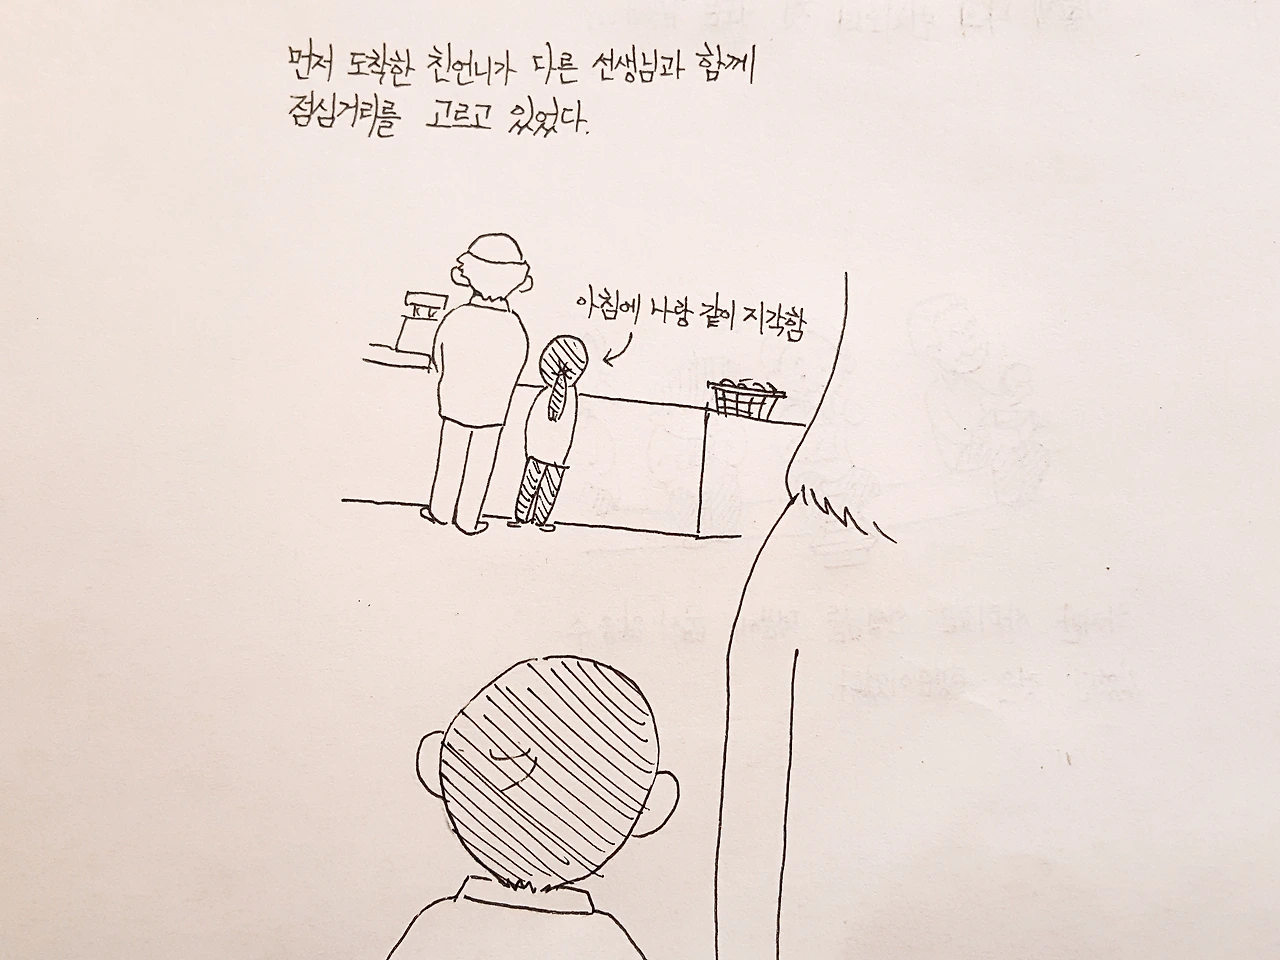 먼저 도착한 친언니가 다른 선생님과 함께
점심거리를 고르고 있었다.
아침에 나랑 같이 지각함